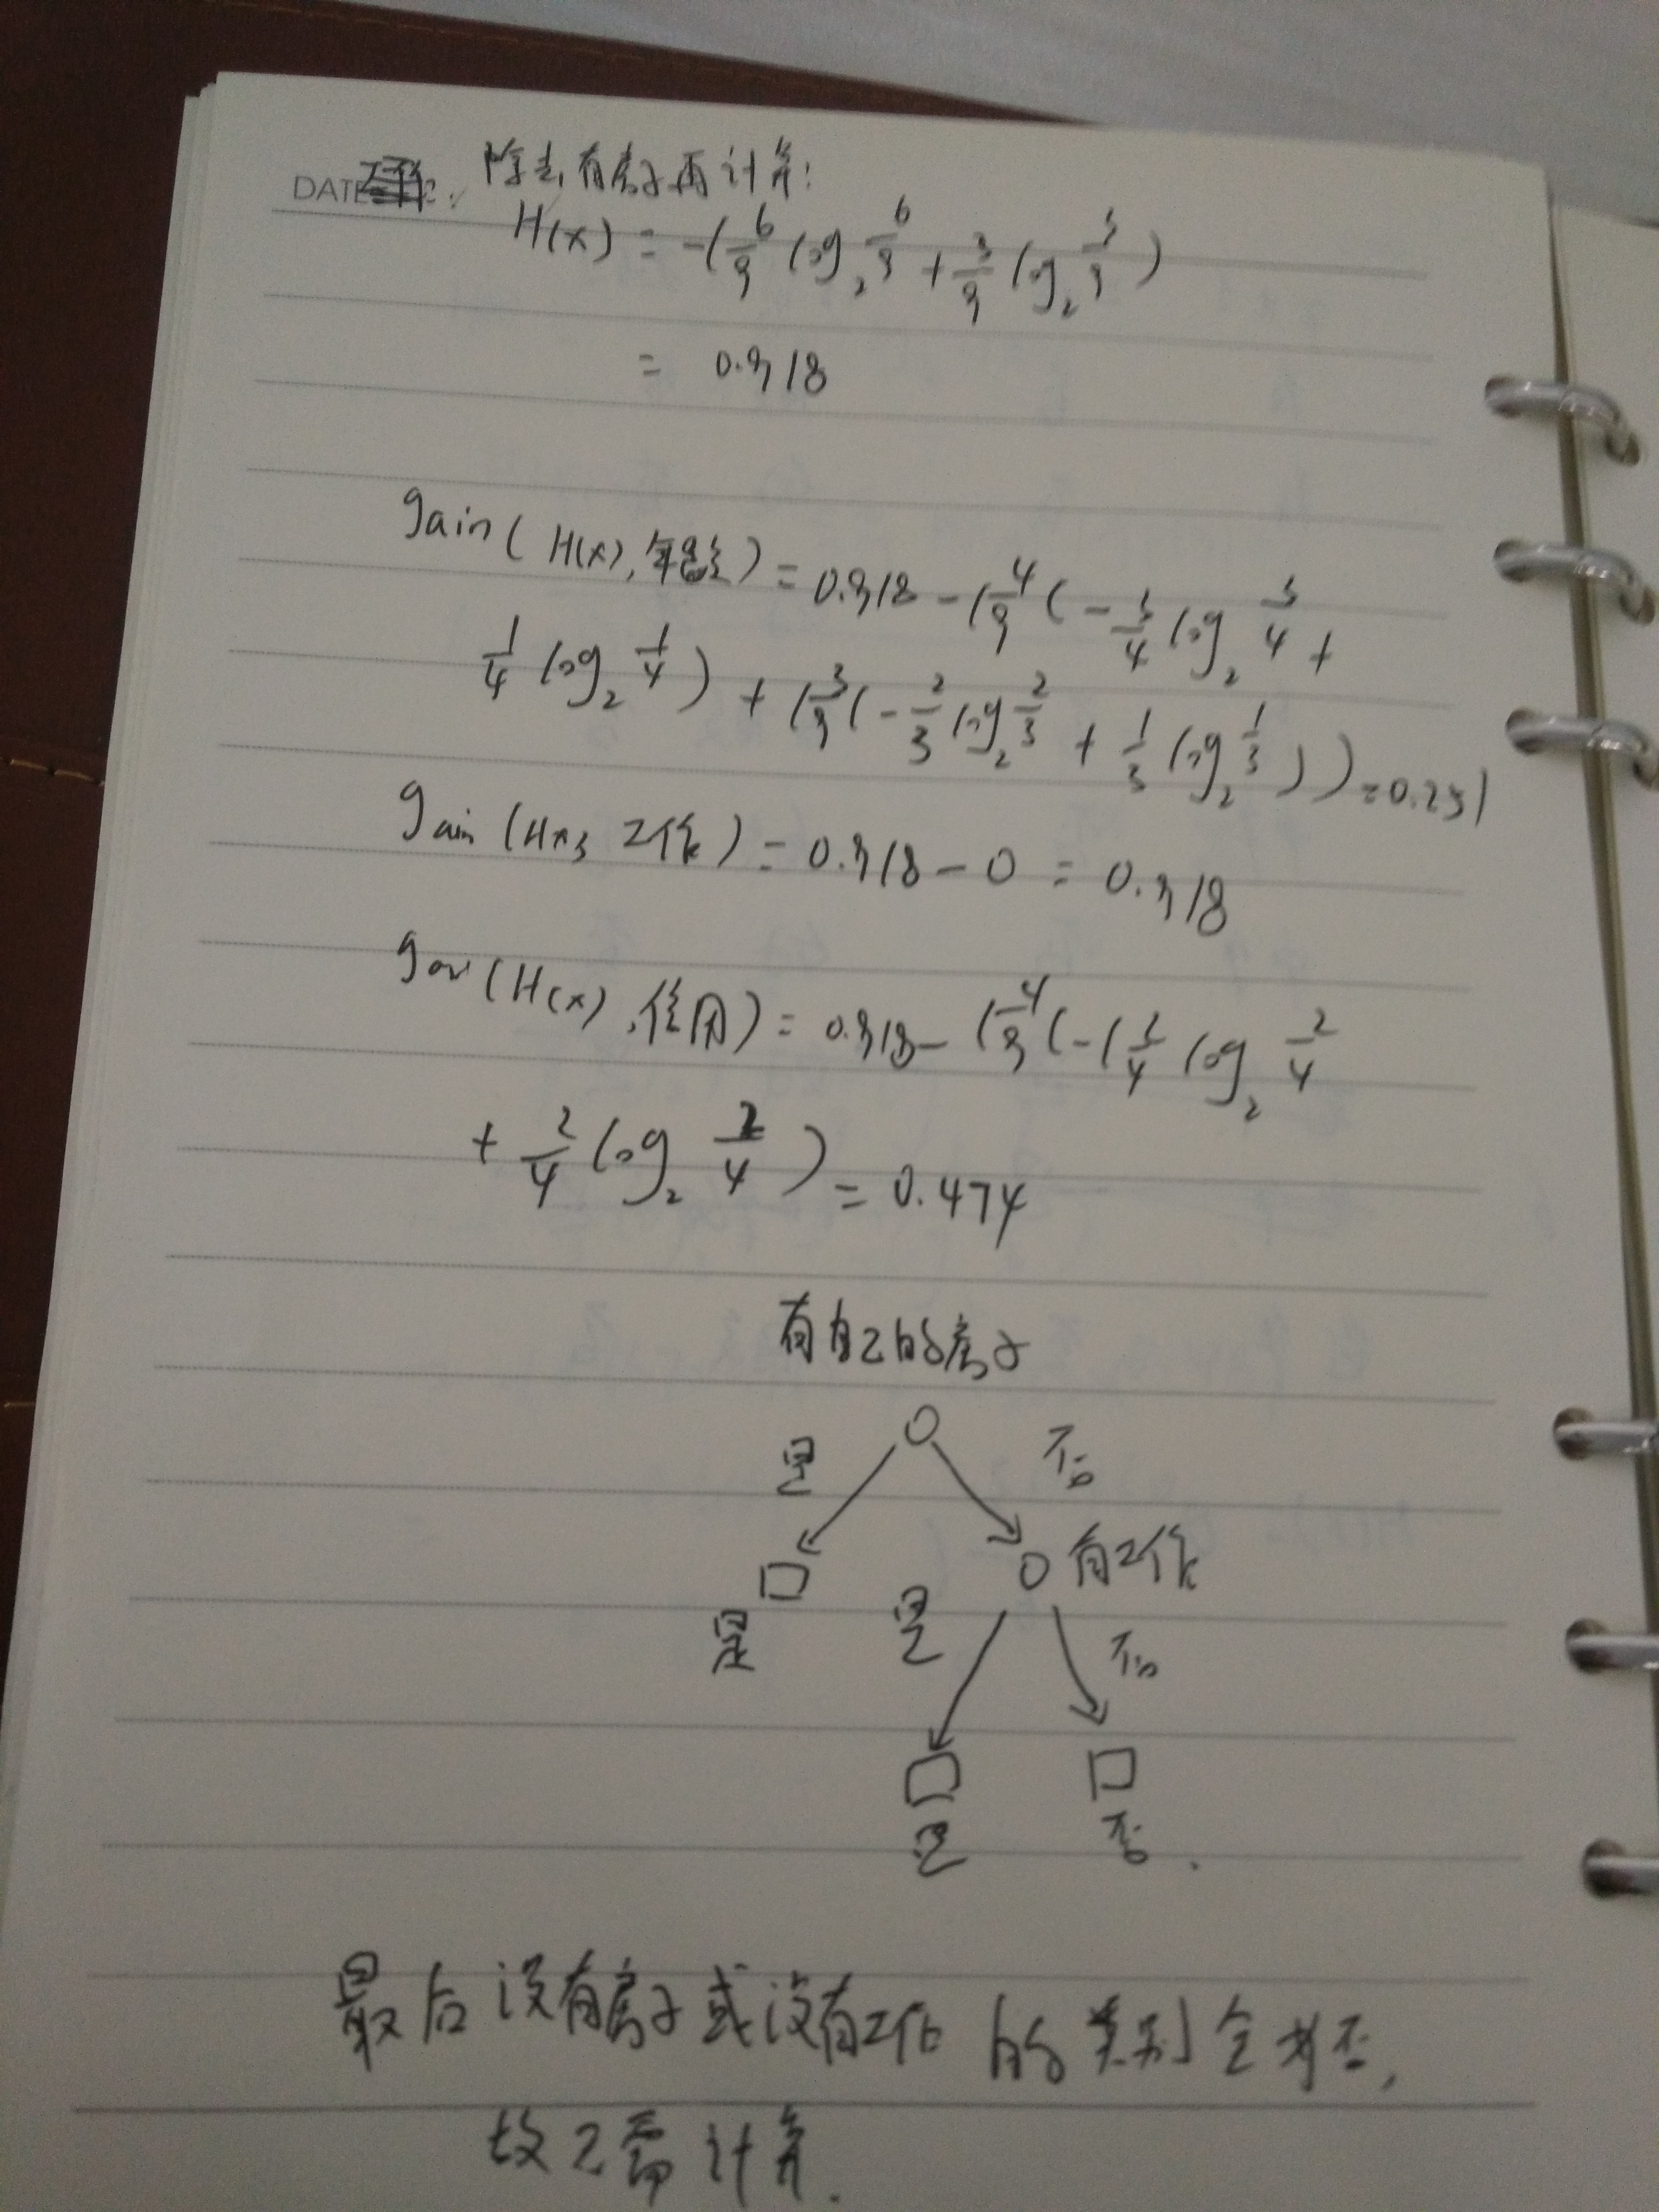 DATE
除去有房子再计算:
H(x) = -(6/9 log₂ 6/9 + 3/9 log₂ 3/9)
= 0.918
gain(H(x),年龄) = 0.918 - (4/9(-3/4 log₂ 3/4 +
1/4 log₂ 1/4) + (3/9(-2/3 log₂ 2/3 + 1/3 log₂ 1/3)) = 0.251
gain(H(x), 工作) = 0.918 - 0 = 0.918
gain(H(x),信用) = 0.918 - (4/9(-(2/4 log₂ 2/4
+ 2/4 log₂ 2/4) = 0.474
有自己的房子
是 否
有工作
是 是 否
是 否.
最后没有房子或没有工作的类别全为否,
故不需计算.